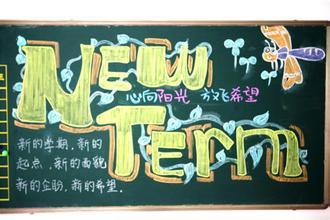 New
心向阳光 放飞希望
Term
新的学期，新的
起点，新的面貌
新的企盼，新的希望。